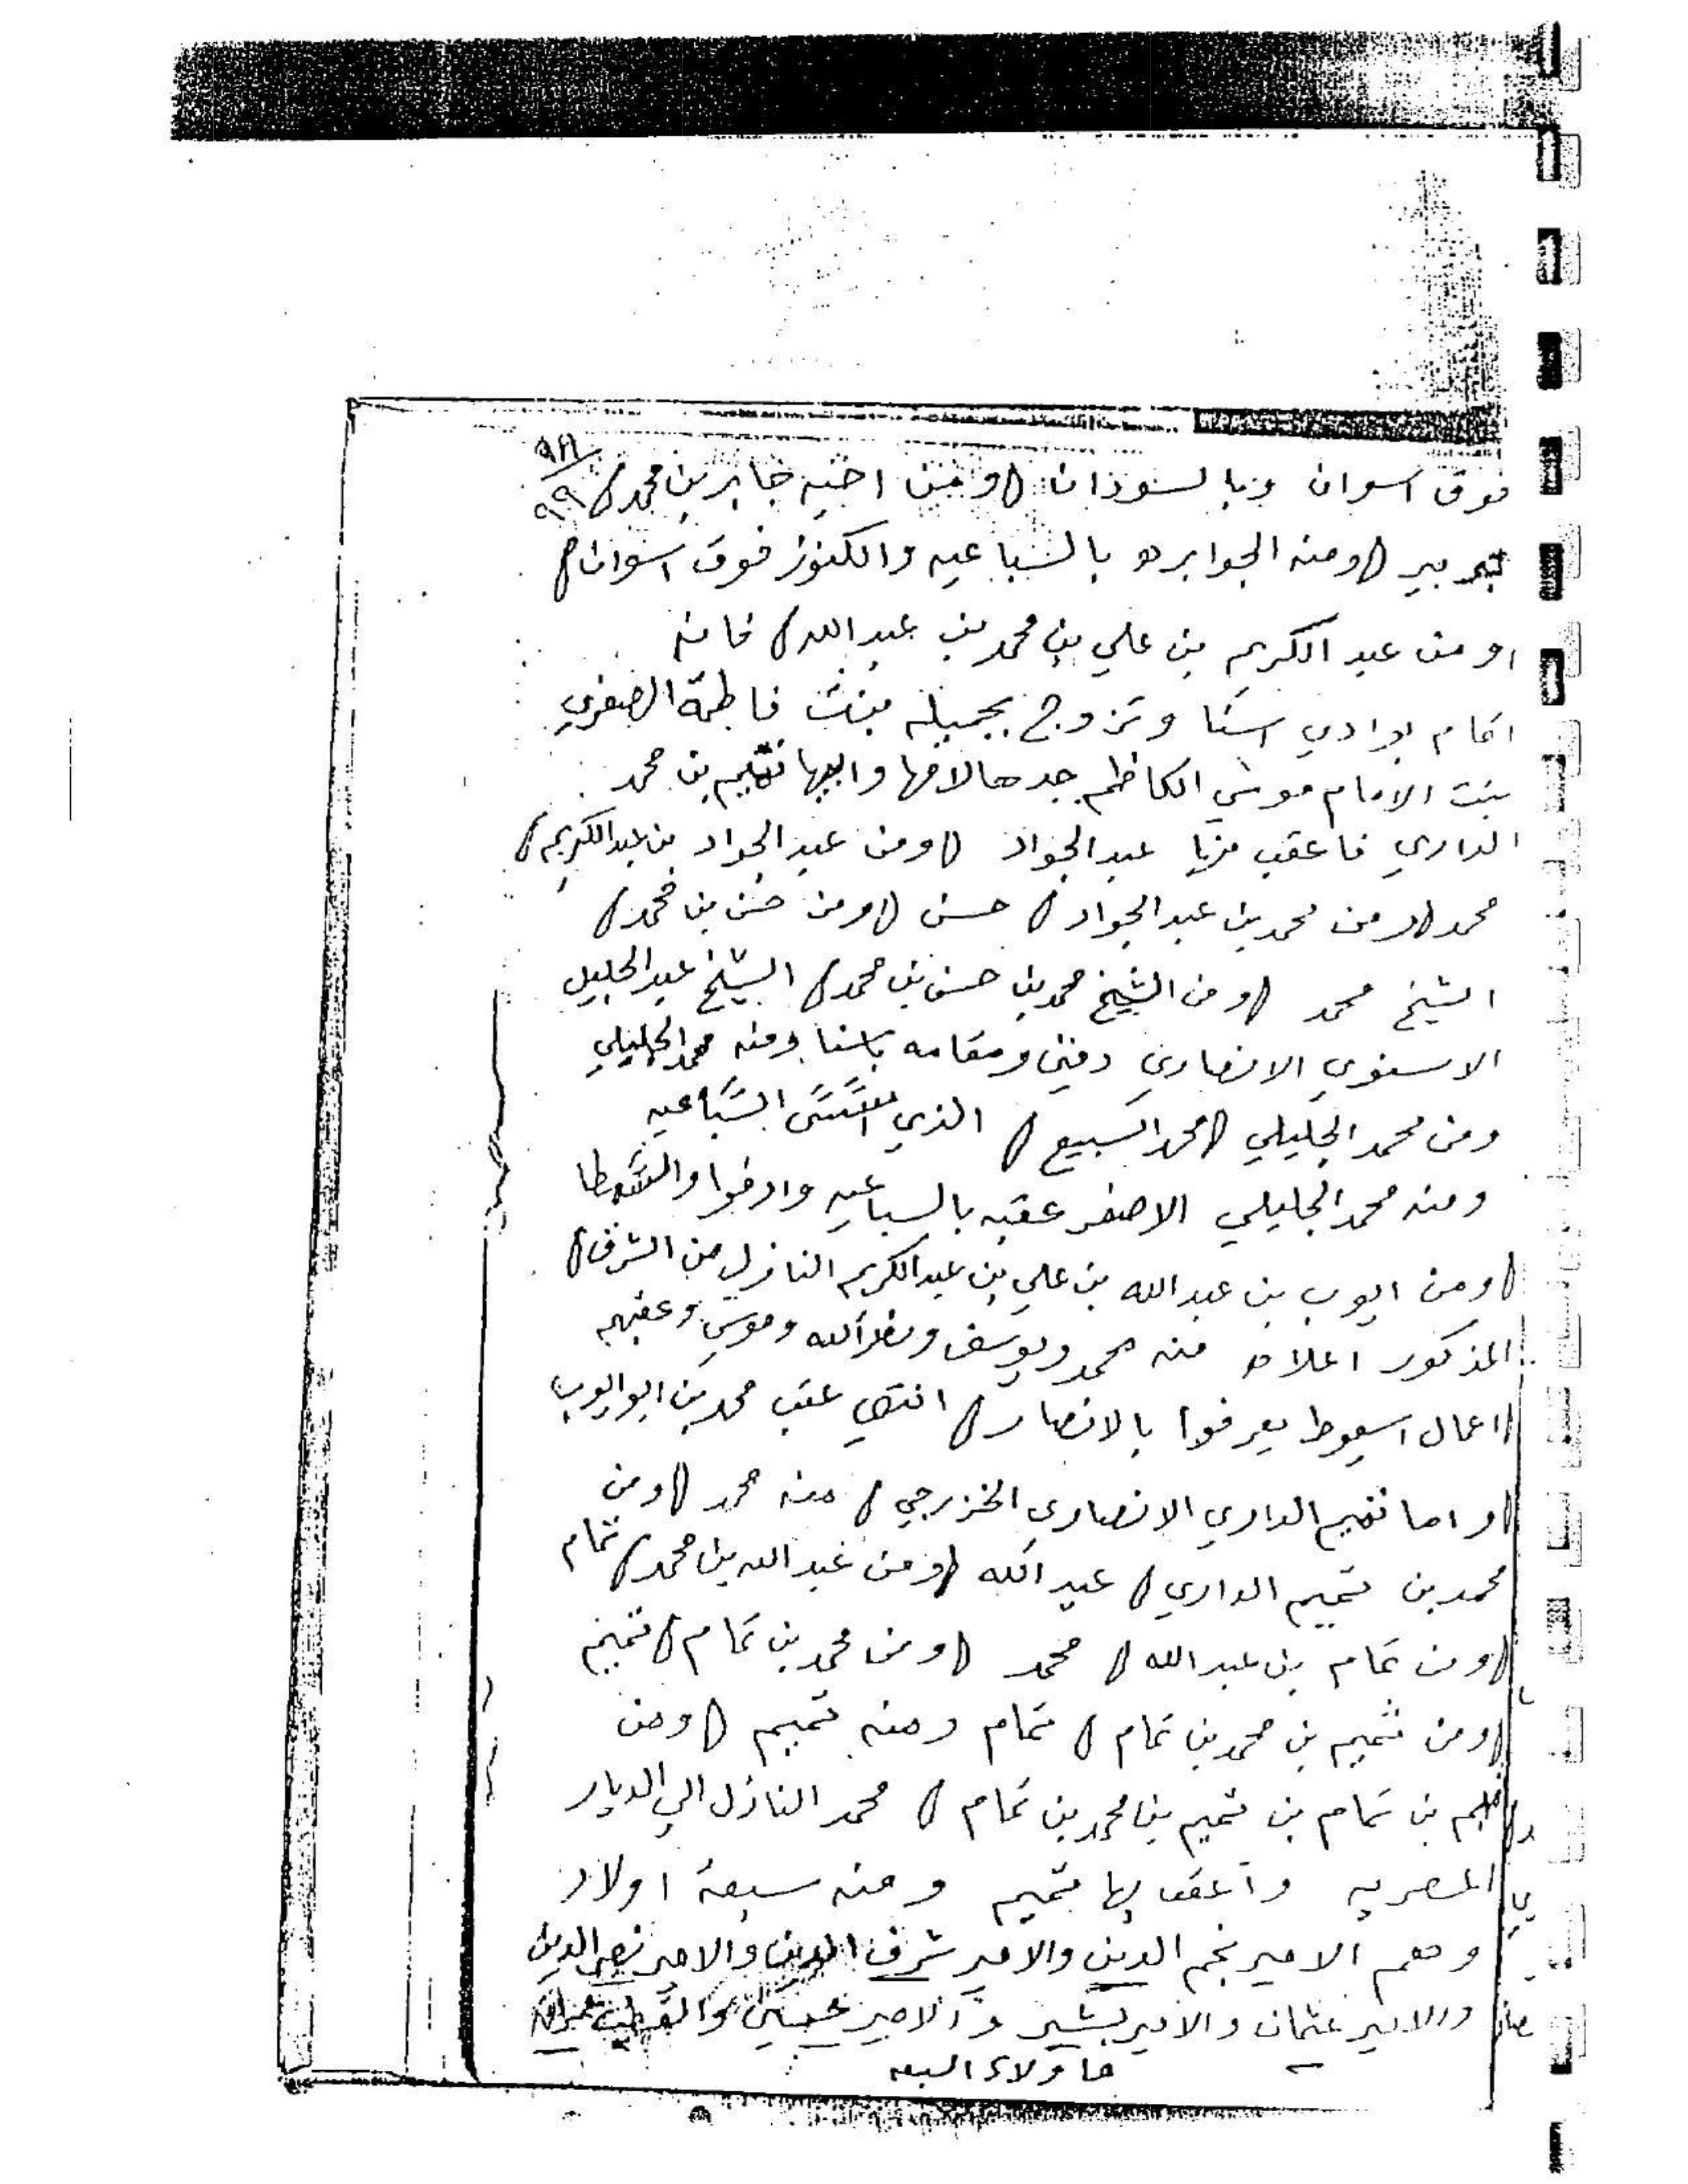 فوق اسوان وبالسوذان ومن اخيه جابر بن محمد ٩٩
ومنه الجوابره بالسباعيه والكنوز فوق اسوان
ومن عبد الكريم بن علي بن محمد بن عبد الله فانه
اقام بوادي اسنا وتزوج بجميله بنت فاطمة الصغري
بنت الامام موسي الكاظم جدها لامها وابيها تميم بن محمد
الداري فاعقب منها عبد الجواد ومن عبد الجواد بن عبد الكريم
محمد ومن محمد بن عبد الجواد حسن ومن حسن بن محمد
الشيخ محمد ومن الشيخ محمد بن حسن بن محمد الشيخ عبد الجليل
الاسنوي الانصاري دفين ومقامه باسنا ومنه محمد الجليلي
ومن محمد الجليلي محمد السبيع الذي السباعيه
ومنه محمد الجليلي الاصغر عقبه بالسباعيه وادفوا
ومن ايوب بن عبد الله بن علي بن عبد الكريم النازل من الشرق
المذكور اعلاه منه محمد ويوسف ونصر الله وموسي وعقبهم
اعمال اسيوط يعرفوا بالانصار انتهي عقب محمد بن ابو ايوب
واما تميم الداري الانصاري الخزرجي منه محمد ومن
محمد بن تميم الداري عبد الله ومن عبد الله بن محمد تمام
ومن تمام بن عبد الله محمد ومن محمد بن تمام تميم
ومن تميم بن محمد بن تمام تمام ومنه تميم ومن
تميم بن تمام بن تميم بن محمد بن تمام محمد النازل الي الديار
المصريه واعقب بها تميم ومنه سبعة اولاد
وهم الامير نجم الدين والامير شرف الدين والامير نصر الدين
والامير عثمان والامير بشير والامير
هاولاء السبعه